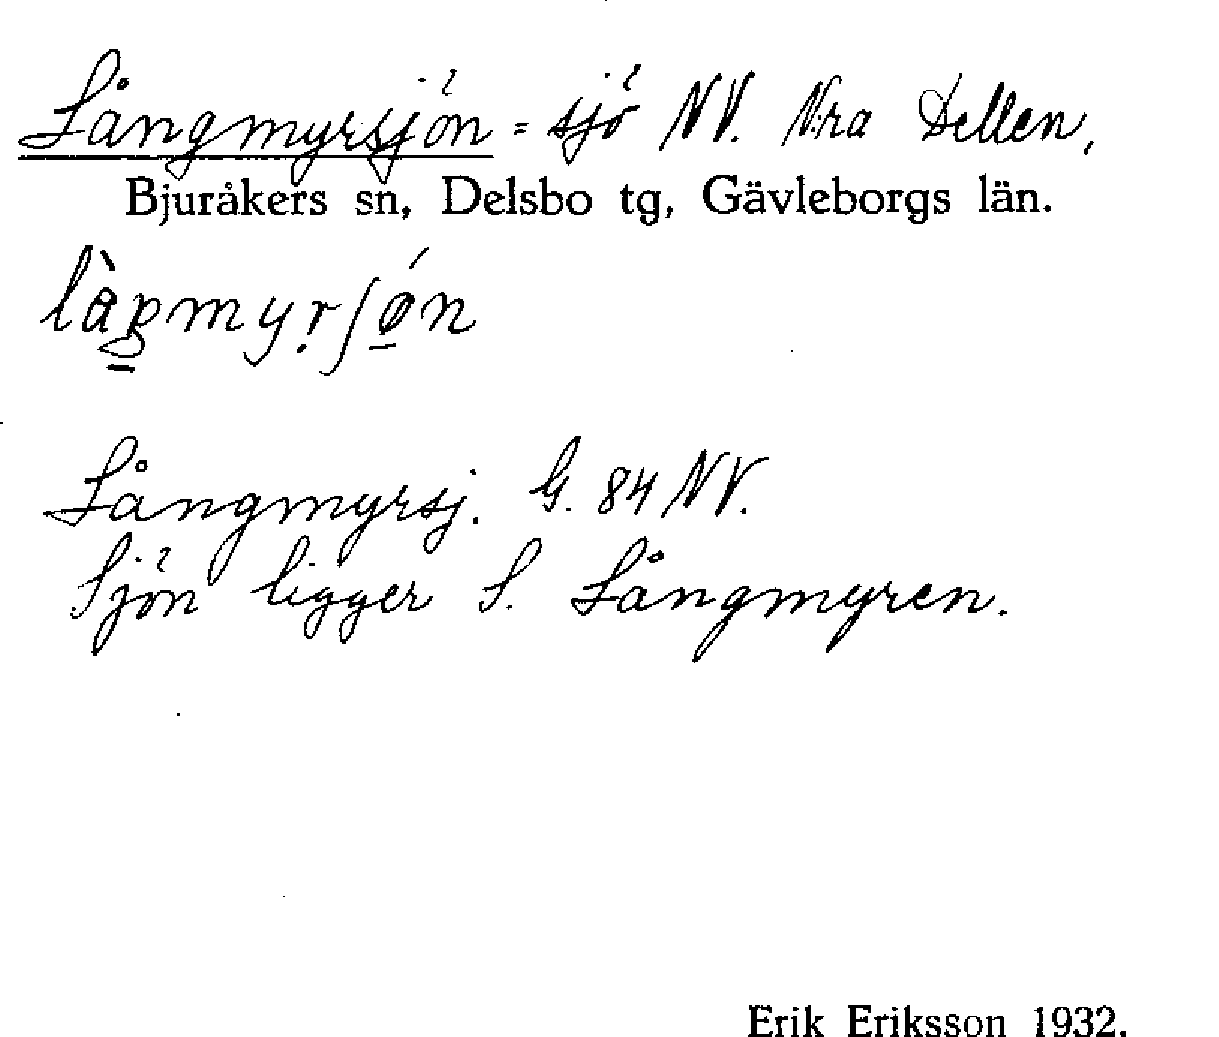 Långmyrsjön = sjö NV. N:ra Dellen,
Bjuråkers sn, Delsbo tg, Gävleborgs län.
Långmyrsj. G. 84 NV.
Sjön ligger S. Långmyren.
Erik Eriksson 1932.